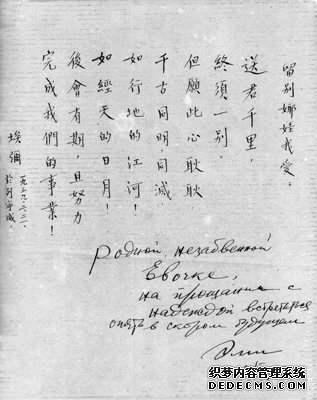 留別娜娃我愛：
送君千里，
終須一別。
但願此心耿耿
千古同明同滅，
如行地的江河！
如經天的日月！
後會有期，且努力
完成我們的事業！
埃彌
於列寧城.
Родной, незабвенной
Евочке,
на прощание с
надеждой встретиться
опять в скором будущем
Эми
织梦内容管理系统
DEDECMS.COM